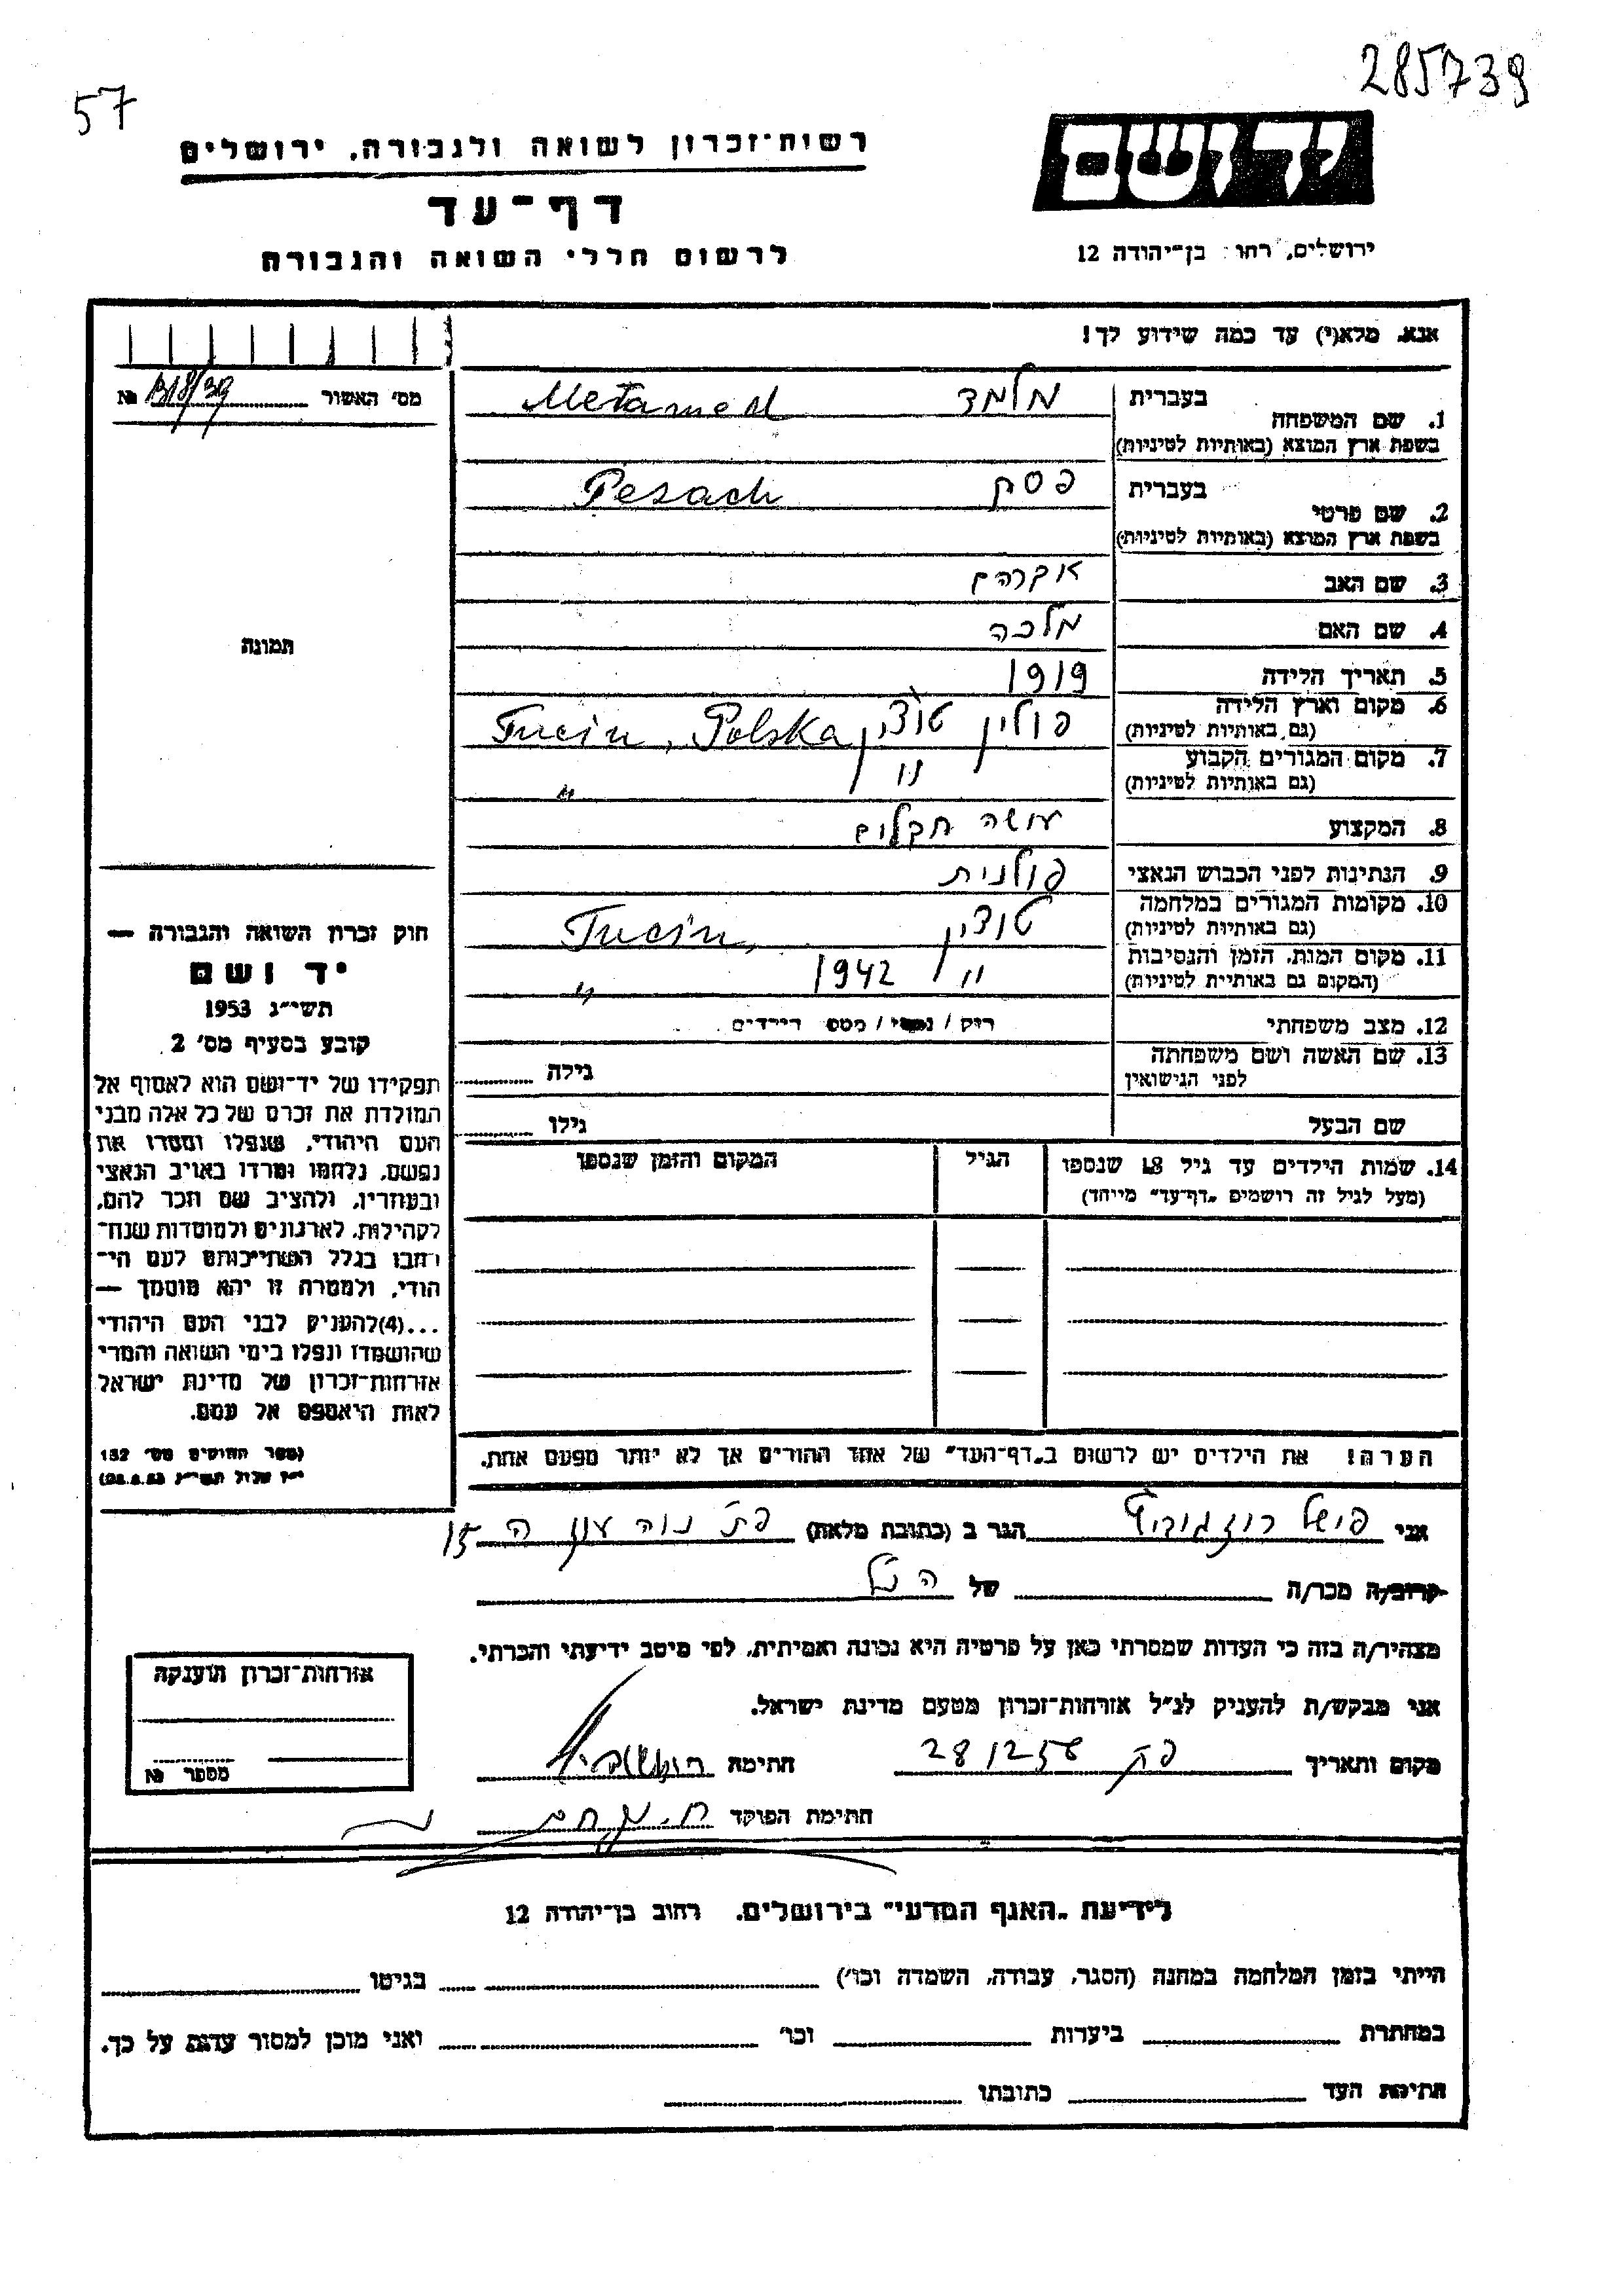 285739
57
רשות־זכרון לשואה ולגבורה, ירושלים
יד ושם
דף־עד
ירושלים, רחו׳ בן־יהודה 12
לרשום חללי השואה והגבורה
אנא, מלא(י) עד כמה שידוע לך!
מס׳ האשור №
בעברית מלמד Metamed
1. שם המשפחה
בשפת ארץ המוצא (באותיות לטיניות)
בעברית פסח Pesach
2. שם פרטי
בשפת ארץ המוצא (באותיות לטיניות)
3. שם האב אברהם
4. שם האם מלכה
תמונה
5. תאריך הלידה 1919
6. מקום וארץ הלידה פולין טוצין Tucin, Polska
(גם באותיות לטיניות)
7. מקום המגורים הקבוע " "
(גם באותיות לטיניות)
8. המקצוע עושה חבלים
9. הנתינות לפני הכבוש הנאצי פולנית
10. מקומות המגורים במלחמה טוצין Tucin,
(גם באותיות לטיניות)
11. מקום המות, הזמן והנסיבות " 1942 "
(המקום גם באותיות לטיניות)
12. מצב משפחתי רוק / נשוי / מספר הילדים
13. שם האשה ושם משפחתה גילה
לפני הנישואין
שם הבעל גילו
14. שמות הילדים עד גיל 18 שנספו הגיל המקום והזמן שנספו
(מעל לגיל זה רושמים „דף־עד" מייחד)
הערה! את הילדים יש לרשום ב„דף־העד" של אחד ההורים אך לא יותר מפעם אחת.
חוק זכרון השואה והגבורה —
יד ושם
תשי״ג 1953
קובע בסעיף מס׳ 2
תפקידו של יד־ושם הוא לאסוף אל
המולדת את זכרם של כל אלה מבני
העם היהודי, שנפלו ומסרו את
נפשם, נלחמו ומרדו באויב הנאצי
ובעוזריו, ולהציב שם וזכר להם,
לקהילות, לארגונים ולמוסדות שנח־
רבו בגלל השתייכותם לעם הי־
הודי, ולמטרה זו יהא מוסמך —
...(4)להעניק לבני העם היהודי
שהושמדו ונפלו בימי השואה והמרי
אזרחות־זכרון של מדינת ישראל
לאות היאספם אל עמם.
(ספר החוקים מס׳ 132
אני פישל הגר ב (כתובת מלאה) פ״ת נוה עוז ה 15
קרוב/ה מכר/ה של הנ״ל
מצהיר/ה בזה כי העדות שמסרתי כאן על פרטיה היא נכונה ואמיתית, לפי מיטב ידיעתי והכרתי.
אני מבקש/ת להעניק לנ״ל אזרחות־זכרון מטעם מדינת ישראל.
מקום ותאריך פת 281258 חתימה
חתימת הפוקד
אזרחות־זכרון הוענקה
מספר №
לידיעת „האגף המדעי" בירושלים, רחוב בן־יהודה 12
הייתי בזמן המלחמה במחנה (הסגר, עבודה, השמדה וכו׳) בגיטו
במחתרת ביערות וכו׳ ואני מוכן למסור עדות על כך.
חתימת העד כתובתו